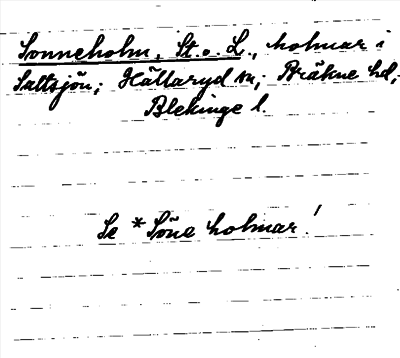 Sonneholm, St. o. L., holmar i
Saltsjön; Hällaryd sn; Bräkne hd,
Blekinge l.
Se *Söne holmar!